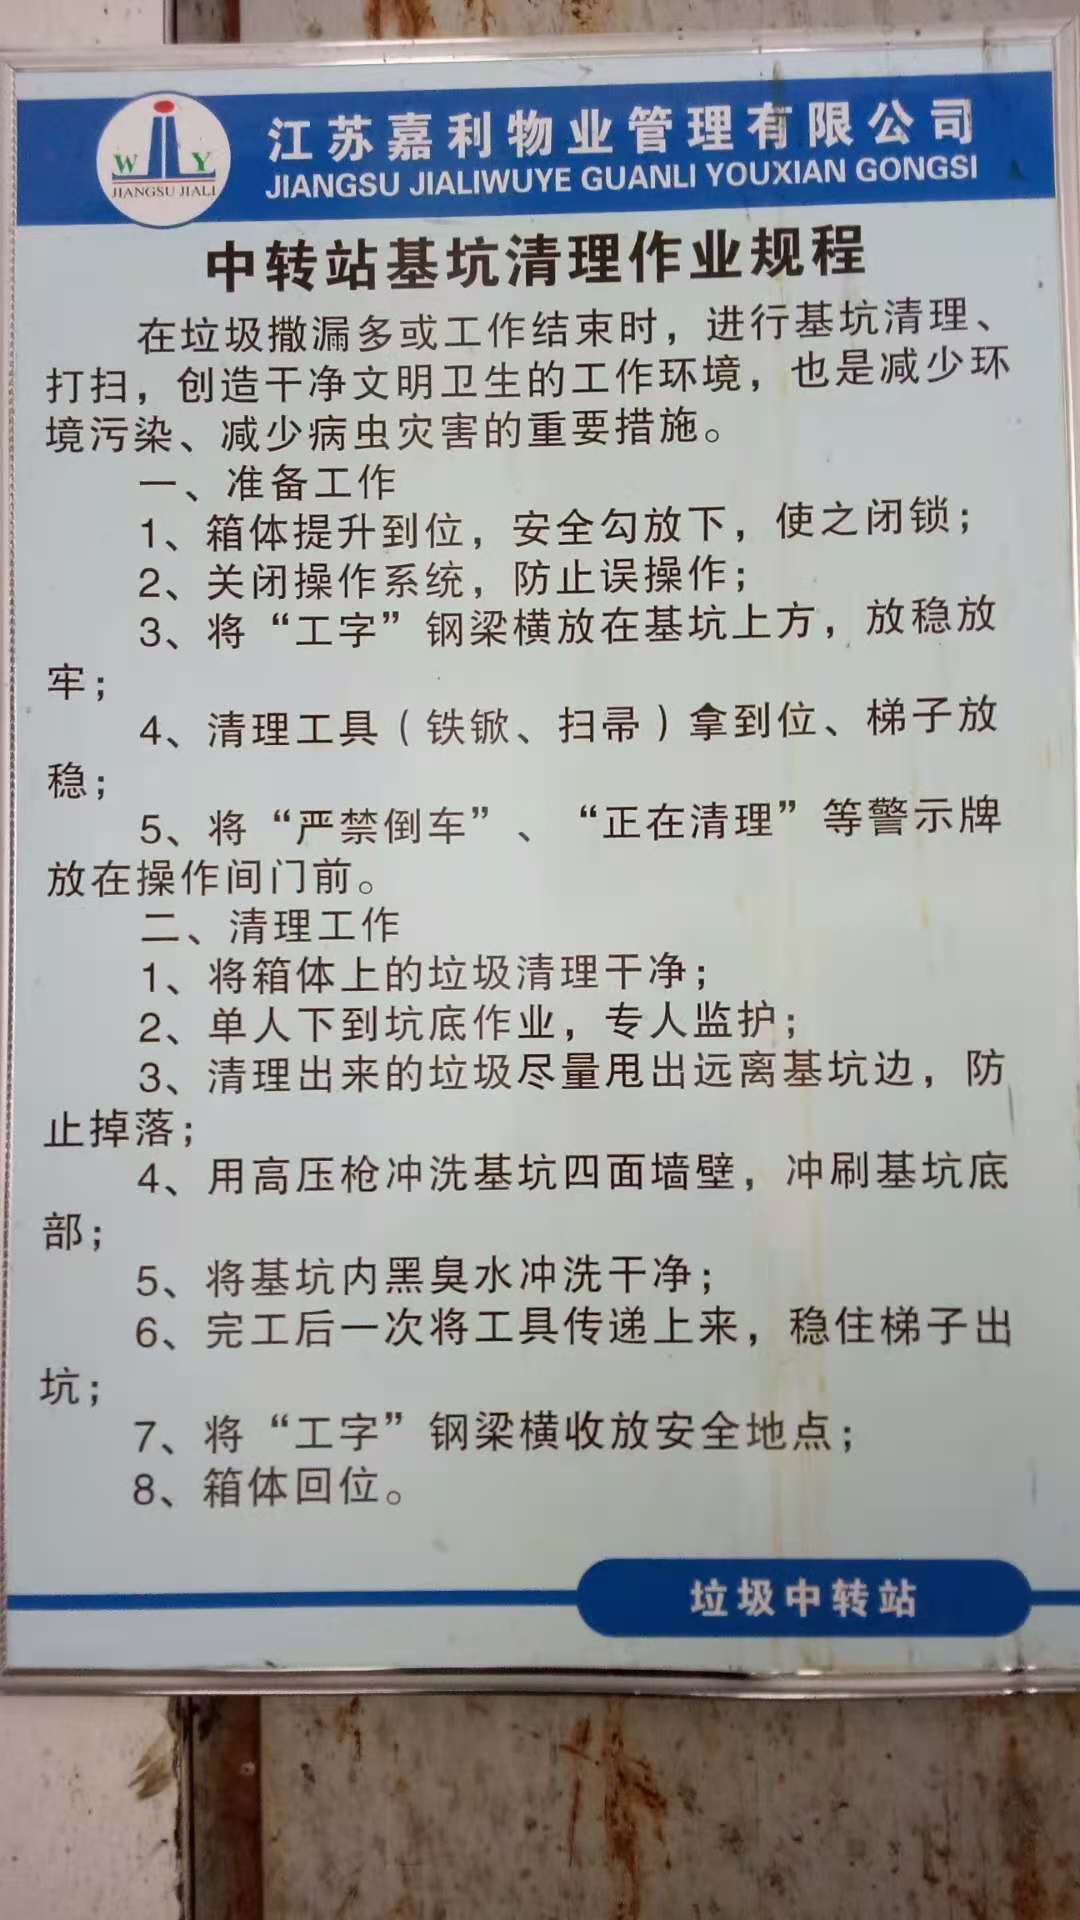 W Y
JIANGSU JIALI
江苏嘉利物业管理有限公司
JIANGSU JIALIWUYE GUANLI YOUXIAN GONGSI
中转站基坑清理作业规程
在垃圾撒漏多或工作结束时，进行基坑清理、
打扫，创造干净文明卫生的工作环境，也是减少环
境污染、减少病虫灾害的重要措施。
一、准备工作
1、箱体提升到位，安全勾放下，使之闭锁；
2、关闭操作系统，防止误操作；
3、将“工字”钢梁横放在基坑上方，放稳放
牢；
4、清理工具（铁锨、扫帚）拿到位、梯子放
稳；
5、将“严禁倒车”、“正在清理”等警示牌
放在操作间门前。
二、清理工作
1、将箱体上的垃圾清理干净；
2、单人下到坑底作业，专人监护；
3、清理出来的垃圾尽量甩出远离基坑边，防
止掉落；
4、用高压枪冲洗基坑四面墙壁，冲刷基坑底
部；
5、将基坑内黑臭水冲洗干净；
6、完工后一次将工具传递上来，稳住梯子出
坑；
7、将“工字”钢梁横收放安全地点；
8、箱体回位。
垃圾中转站